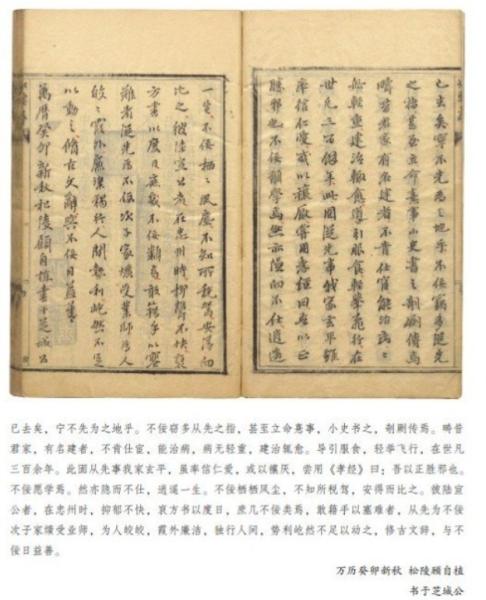 已去矣寧不先為之地乎不佞竊多從先
之指甚至立命意事小史書之剞劂傳焉
疇昔君家有名建者不肯仕宦能治病病
無輕重建治輒愈導引服食輕舉飛行在
世凡三百餘年此固從先事我家玄平雖
率信仁愛或以禳厭嘗用孝經曰吾以正
勝邪也不佞願學焉然亦隱而不仕逍遙
一生不佞栖〻風塵不知所稅駕安得而
比之彼陸宣公者在忠州時抑鬱不快裒
方書以度日庶幾不佞類焉敢藉手以塞
難者從先為不佞次子家受業師為人
皎〻霞外廉潔獨行人間勢利屹然不足
以動之脩古文辭與不佞日益善
萬曆癸卯新秋松陵顧自植書于芝城公
已去矣，宁不先为之地乎。不佞窃多从先之指，甚至立命意事，小史书之，剞劂传焉。畴昔
君家，有名建者，不肯仕宦，能治病，病无轻重，建治辄愈。导引服食，轻举飞行，在世凡
三百余年。此固从先事我家玄平，虽率信仁爱，或以禳厌，尝用《孝经》曰：吾以正胜邪也。
不佞愿学焉。然亦隐而不仕，逍遥一生。不佞栖栖风尘，不知所税驾，安得而比之。彼陆宣
公者，在忠州时，抑郁不快，裒方书以度日，庶几不佞类焉，敢藉手以塞难者，从先为不佞
次子家缵受业师，为人皎皎，霞外廉洁，独行人间，势利屹然不足以动之，修古文辞，与不
佞日益善。
万历癸卯新秋 松陵顾自植
书于芝城公